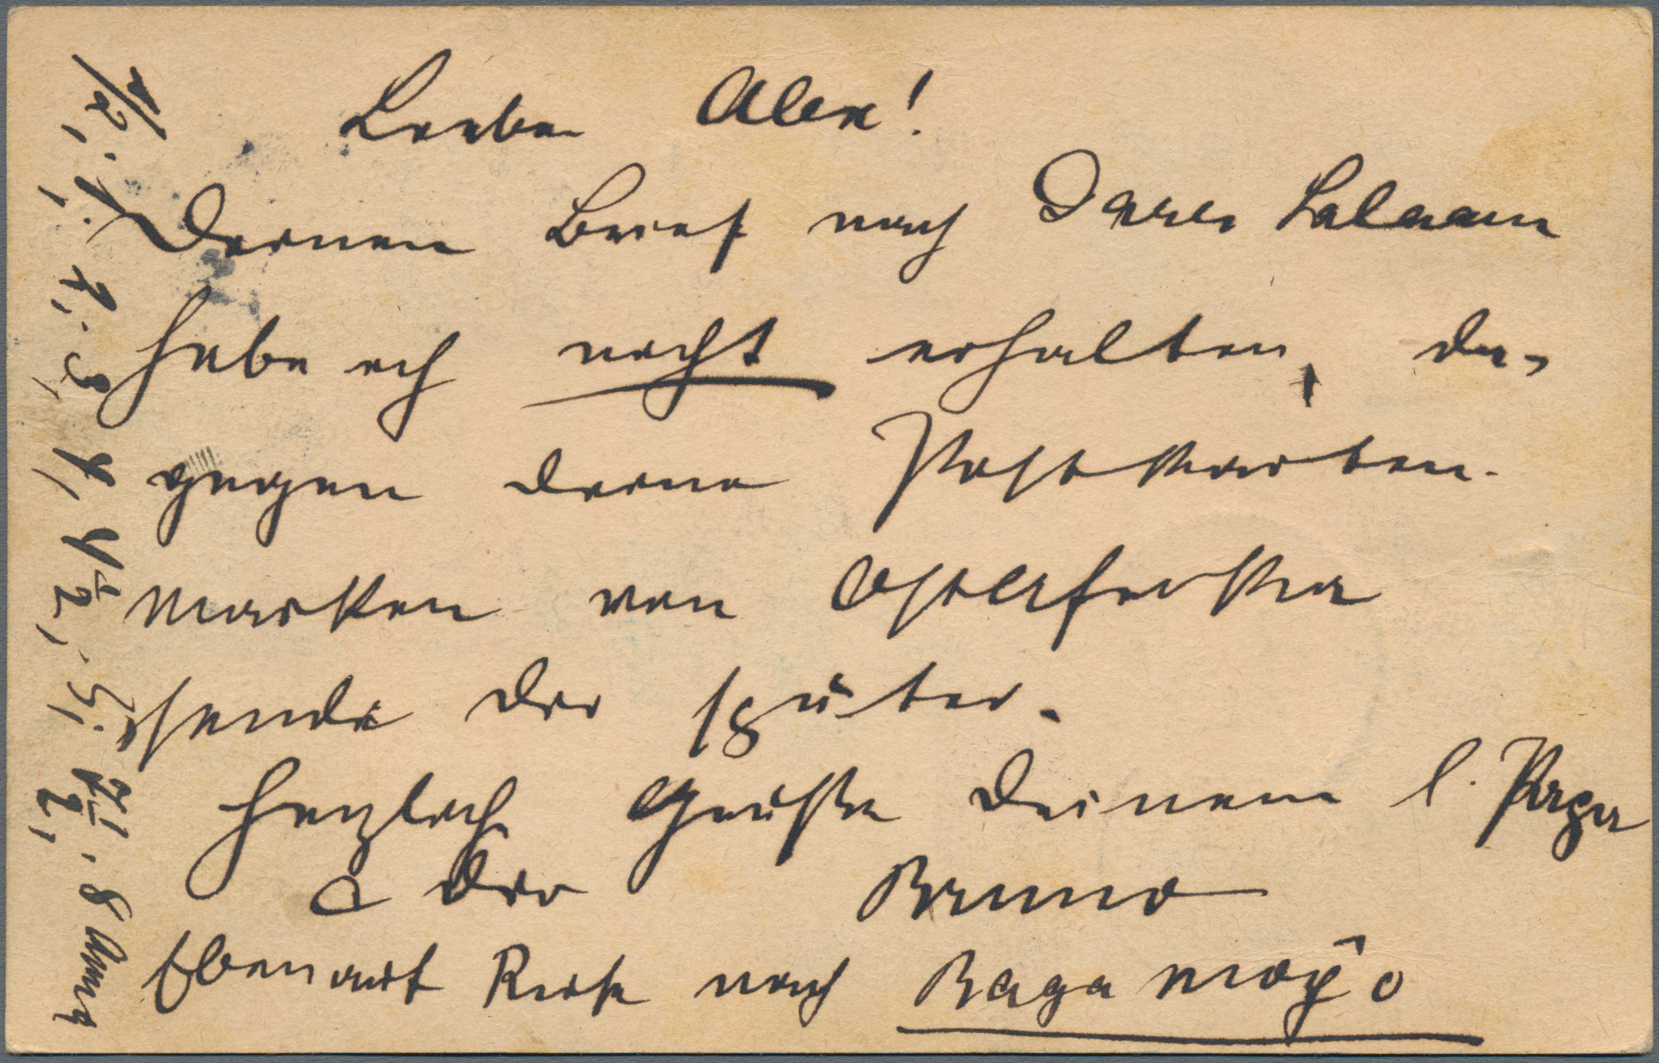 Lieber Alex!
Deinen Brief nach Dares Salaam
habe ich nicht erhalten, da-
gegen deine Postkarten.
Marken von Ostafrika
sende dir später.
Herzliche Grüße Deinem l. Papa
u dir Bruno
Eben auf Reise nach Bagamoÿo
1/2, 1, 2, 3, 4, 4 1/2, 5, 7 1/2, 8 Anna